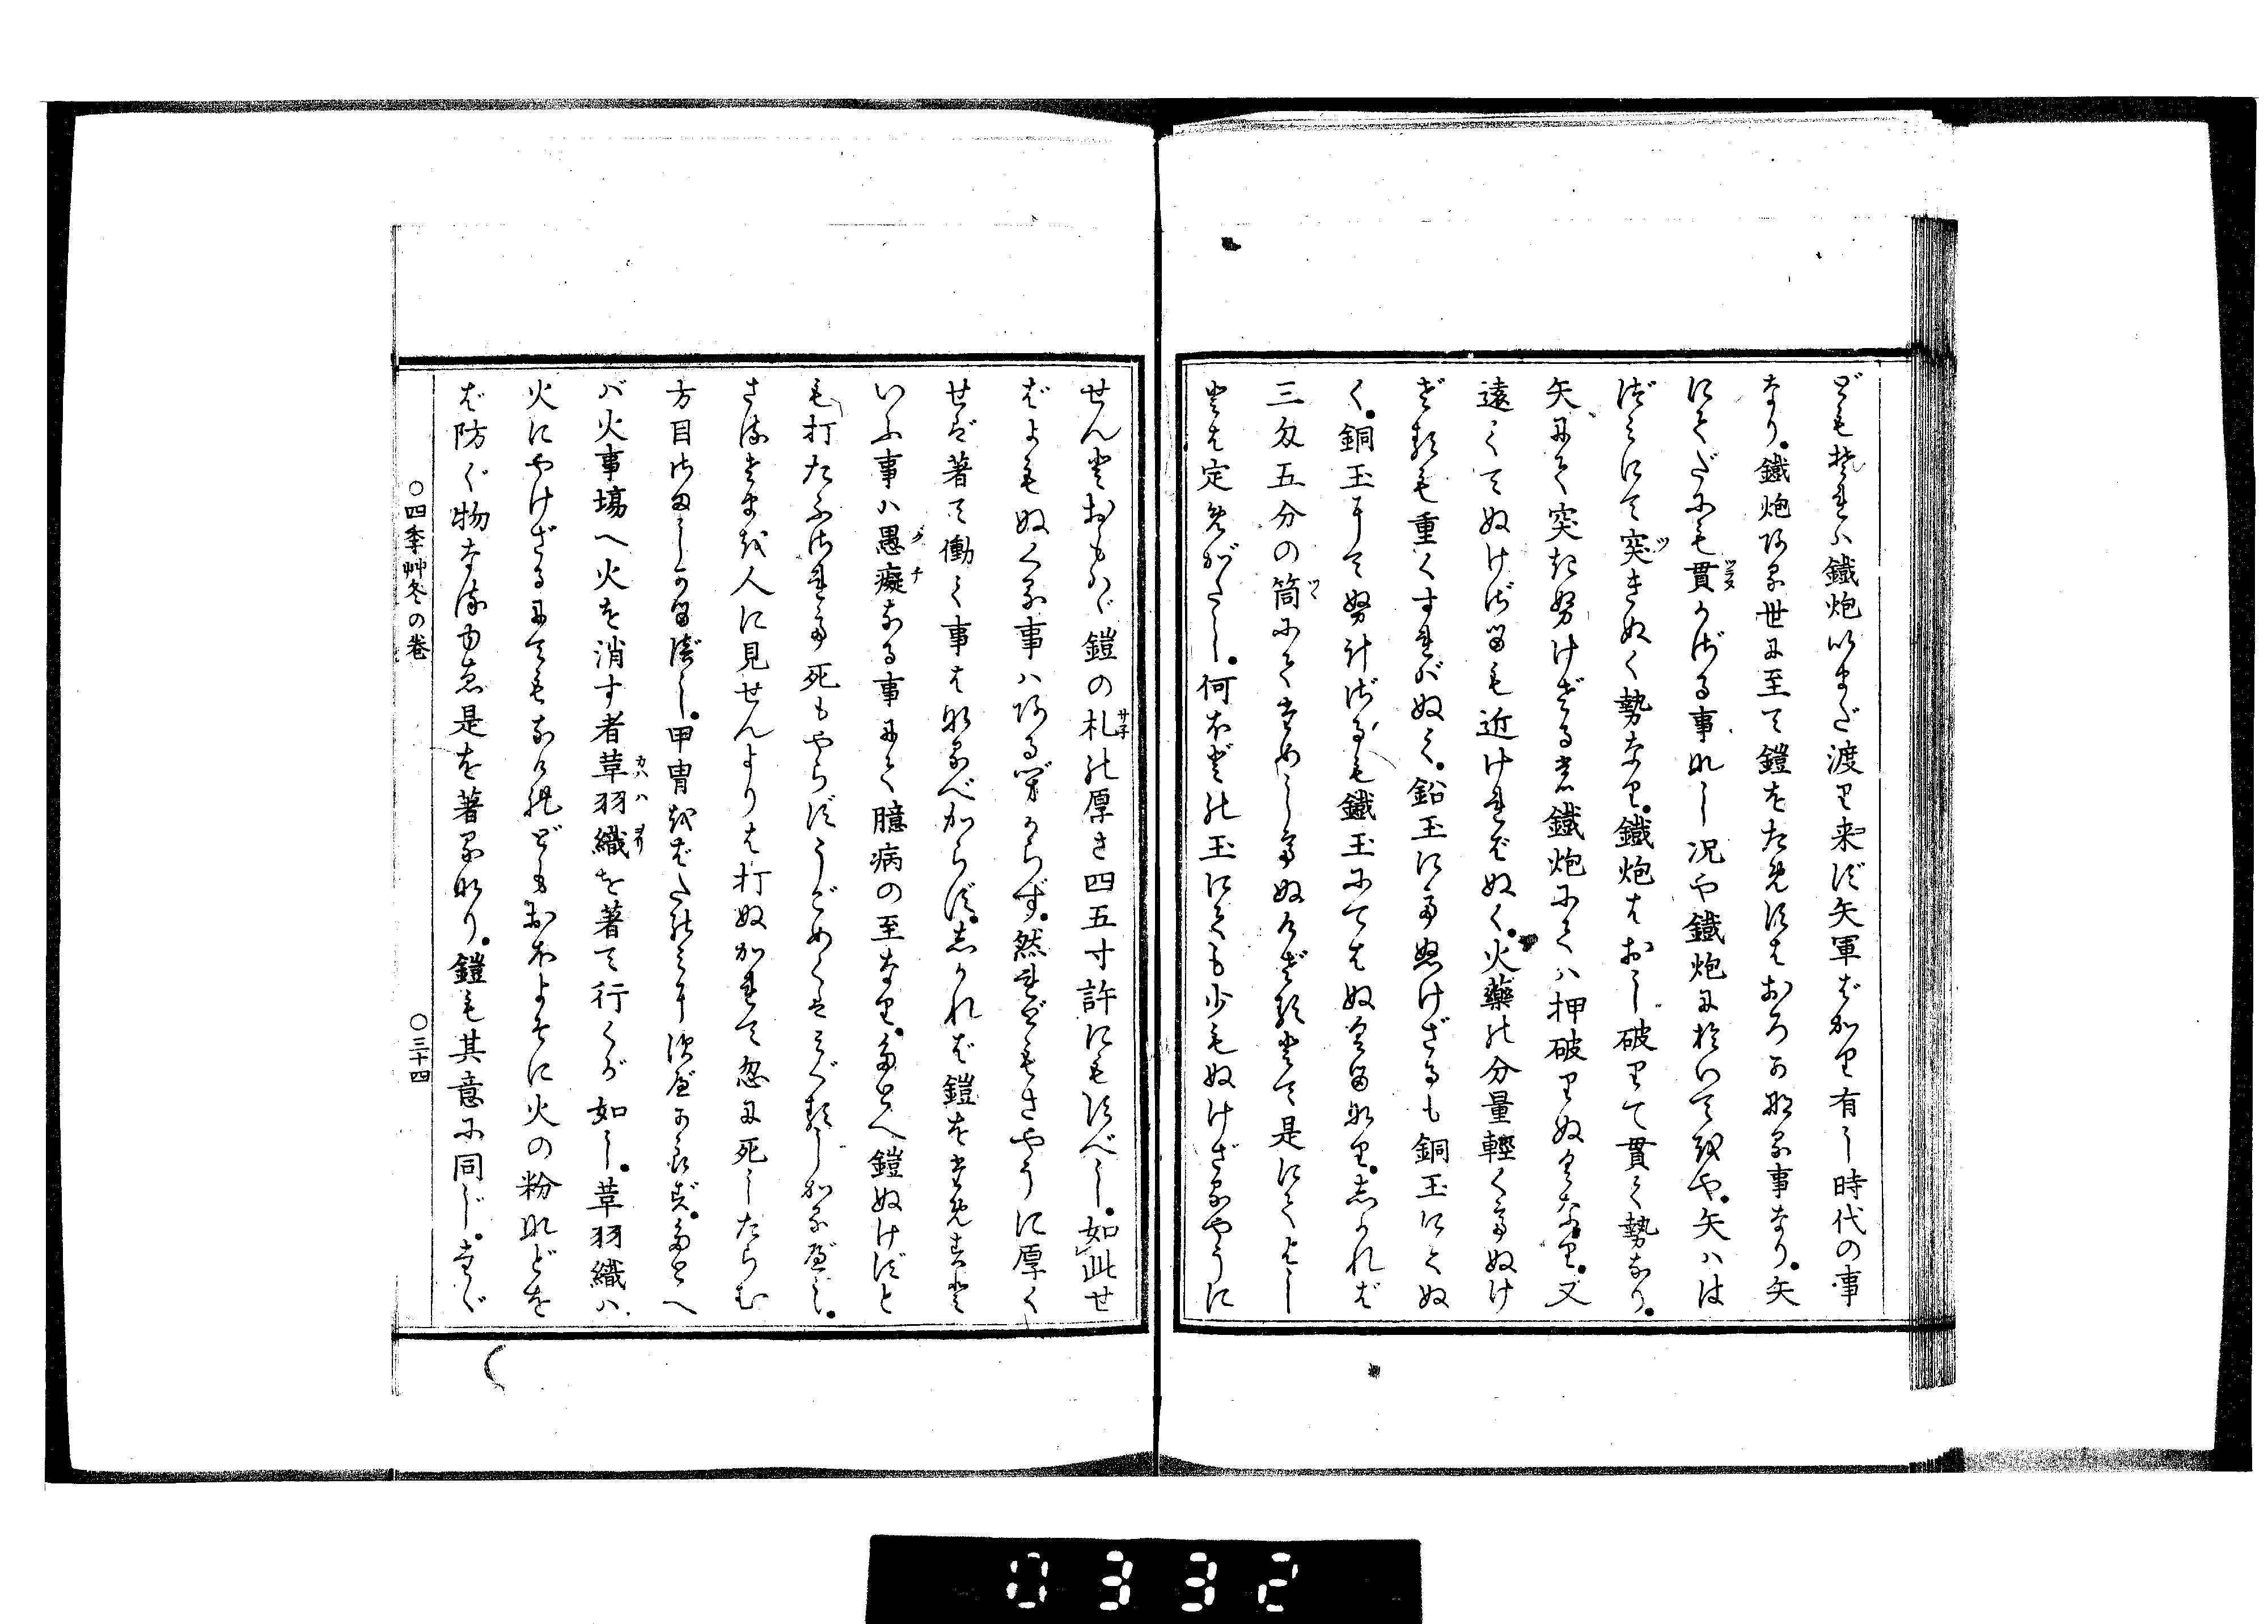 ども其れハ鐵炮いまだ渡り来ず矢軍ばかり有し時代の事
なり。鐵炮ある世に至て鎧をためすはおろかなる事なり。矢
にてだにも貫かざる事なし况や鐵炮に於いてをや。矢ハは
づみにて突きぬく勢なり。鐵炮はおし破りて貫く勢なり。
矢にて突きぬけざるを鐵炮にてハ押破りぬくなり。又
遠くてぬけざるも近ければぬく。火藥の分量輕くてぬけ
ざるも重くすれバぬく。鉛玉にてぬけざるも銅玉にてぬ
く。銅玉にてぬけざるも鐵玉にてはぬくるなり。しかれば
三匁五分の筒にてためしてぬけざるとて是にてよし
とは定めがたし。何ほどの玉にても少もぬけざるやうに
せんとおもハヾ鎧の札の厚さ四五寸許にもすべし。如此せ
ばよもぬくる事ハあるべからず。然れどもさやうに厚く
せバ著て働く事はなるべからず。しかれば鎧をためすと
いふ事ハ愚癡なる事にて臆病の至なり。たとへ鎧ぬけずと
も打たふされて死もやらずうごめくはみぐるしかるべし。
さるさまを人に見せんよりは打ぬかれて忽に死したらむ
方目ざましかるべし。甲冑をばたのみにすべからず。たとへ
バ火事場へ火を消す者革羽織を著て行くが如し。革羽織ハ
火にやけざるにてもなけれどもおほよそに火の粉などを
ば防ぐ物なるゆゑ是を著るなり。鎧も其意に同じ。たゞ
○四季艸冬の卷　○三十四
0332